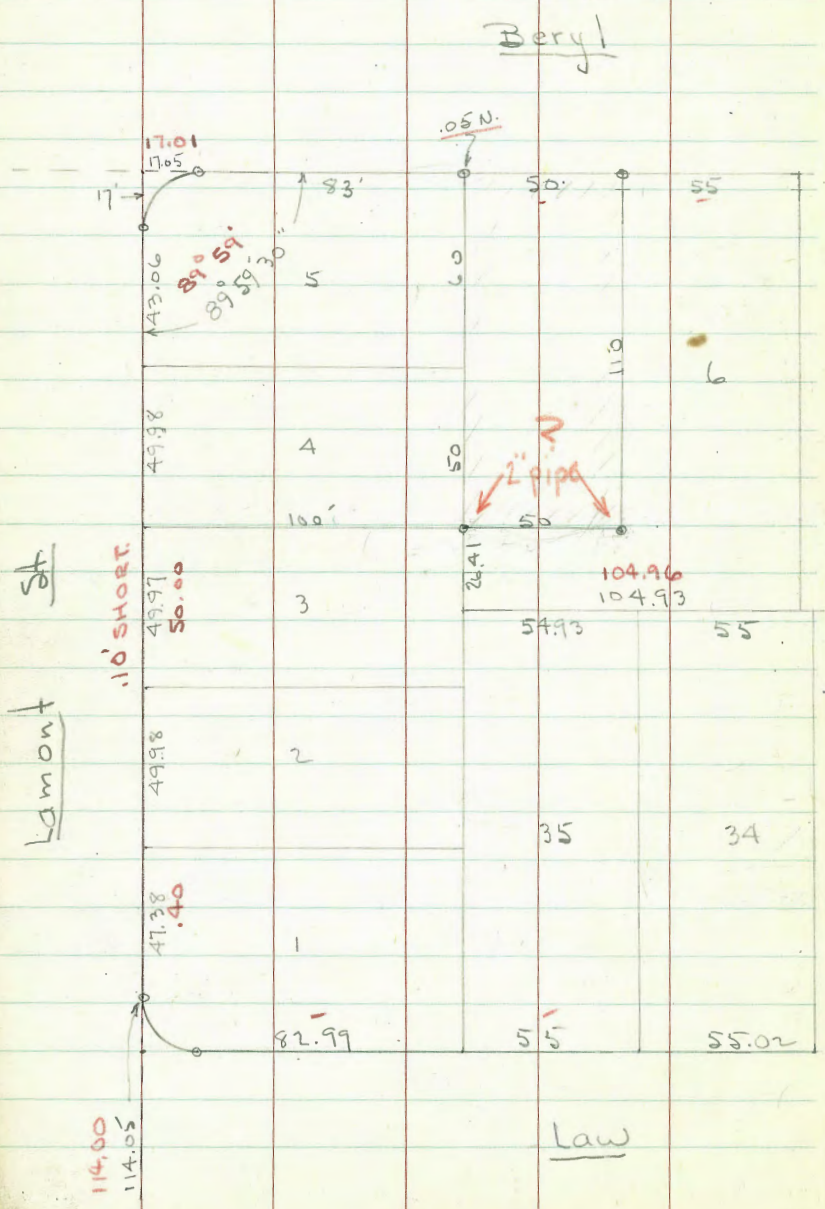 Beryl
.05 N.
17.01
17.05
17'
83'
50.
55
43.06
89° 59'
89° 59' 30"
5
60
110
6
49.98
4
50
?
2" pipe
100'
50
.10' SHORT.
49.97
50.00
3
26.41
104.96
104.93
54.93
55
St
Lamont
49.98
2
35
34
47.38
.40
1
82.99
55
55.02
114.00
114.05
Law